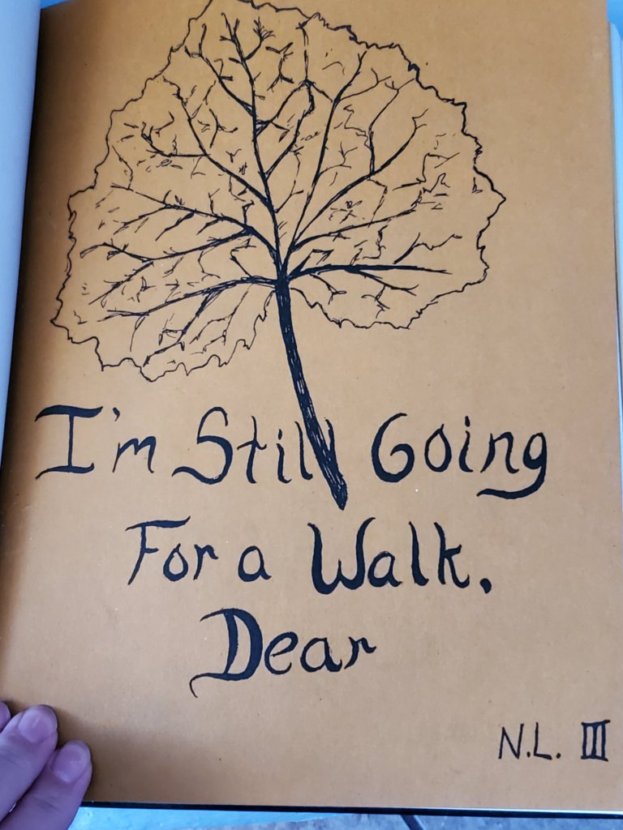 I'm Still Going
For a Walk.
Dear
N.L. III